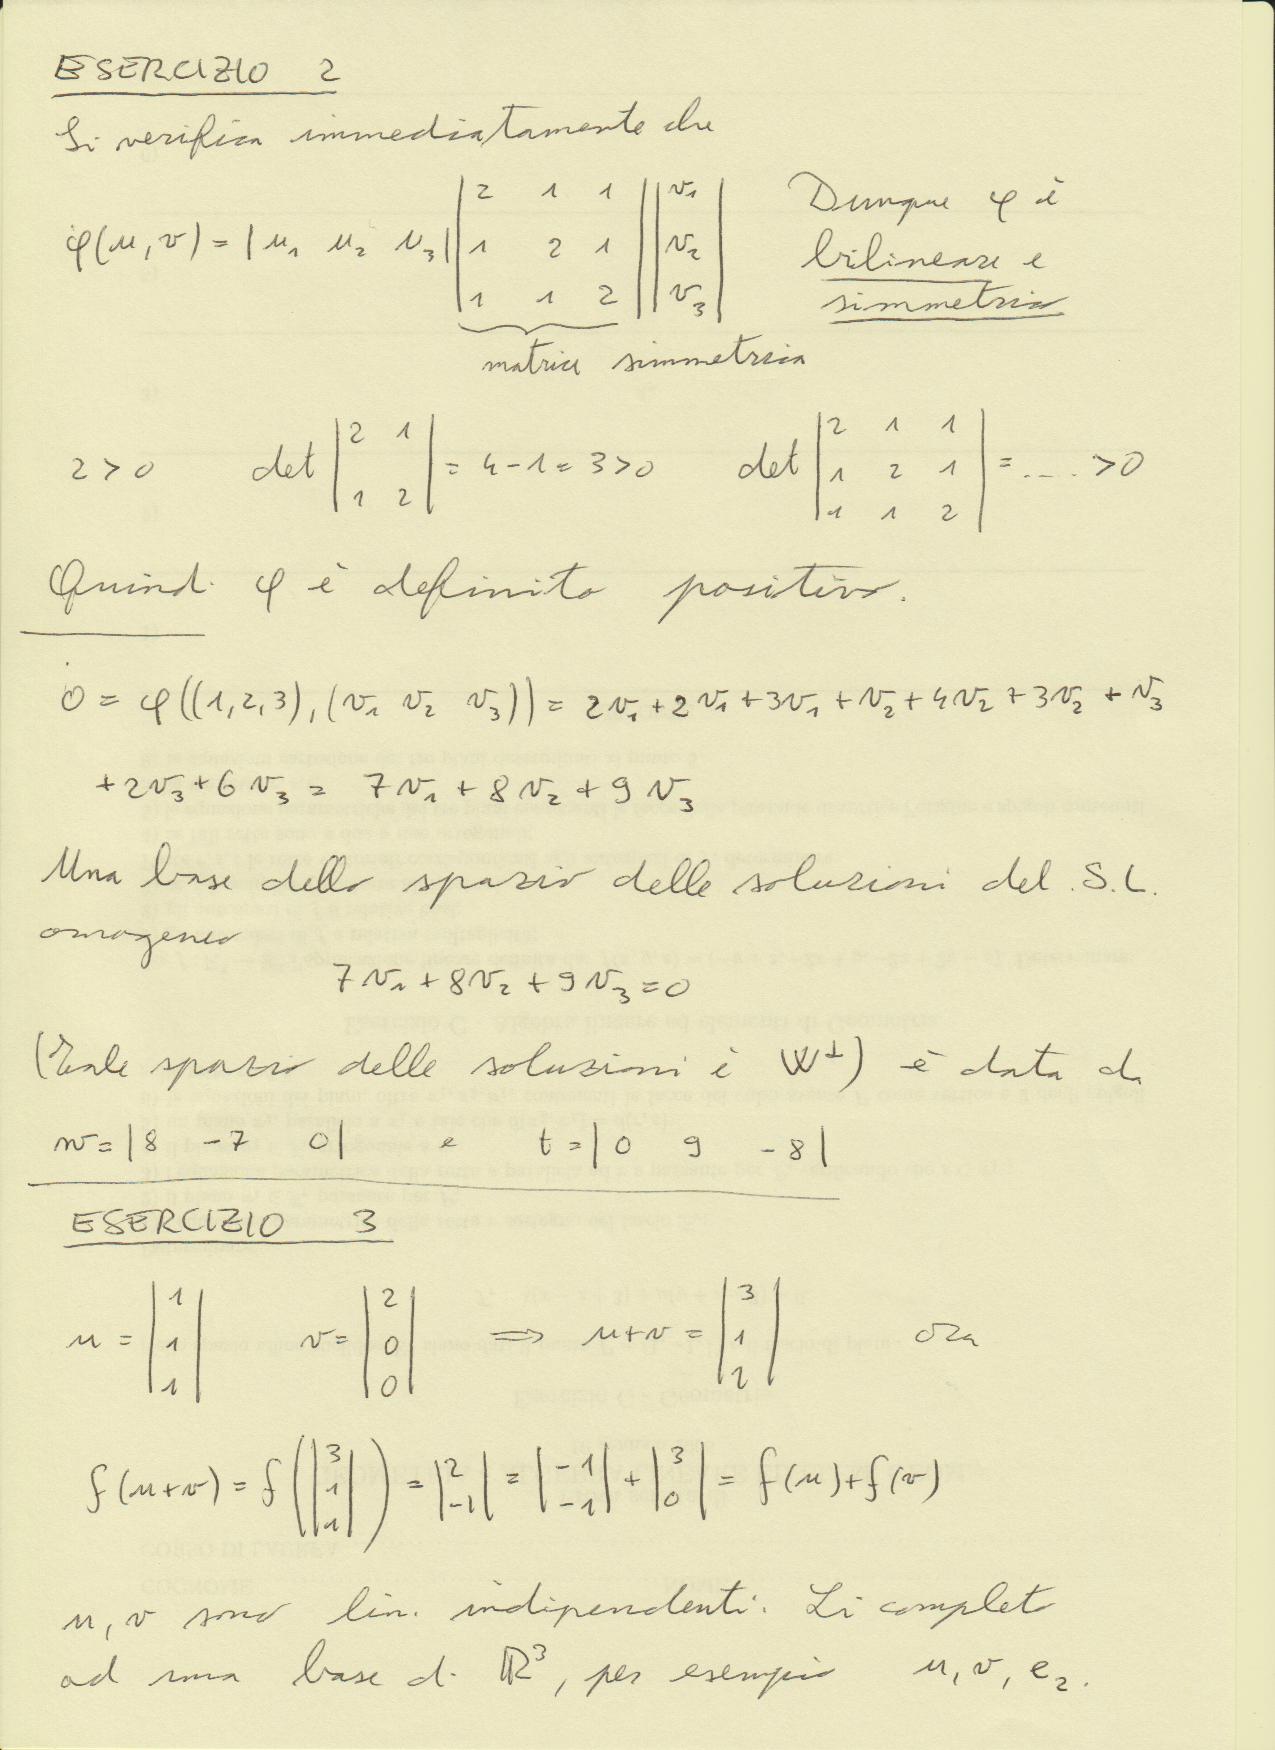 ESERCIZIO 2
Si verifica immediatamente che
φ(u,v) = |u₁ u₂ u₃| |2 1 1; 1 2 1; 1 1 2| |v₁; v₂; v₃| Dunque φ è bilineare e simmetrico
matrice simmetrica
2 > 0 det |2 1; 1 2| = 4 - 1 = 3 > 0 det |2 1 1; 1 2 1; 1 1 2| = .... > 0
Quindi φ è definito positivo.
0 = φ((1,2,3),(v₁ v₂ v₃)) = 2v₁+2v₁+3v₁+v₂+4v₂+3v₂+v₃
+2v₃+6v₃ = 7v₁+8v₂+9v₃
Una base dello spazio delle soluzioni del S.L.
omogeneo
7v₁+8v₂+9v₃=0
(Tale spazio delle soluzioni è W⊥) è data da
w=|8 -7 0| e t=|0 9 -8|
ESERCIZIO 3
u = |1; 1; 1| v= |2; 0; 0| ⟹ u+v = |3; 1; 2| ora
f(u+v) = f(|3; 1; 1|) = |2; -1| = |-1; -1| + |3; 0| = f(u)+f(v)
u, v sono lin. indipendenti. Li completo
ad una base di ℝ³, per esempio u, v, e₂.